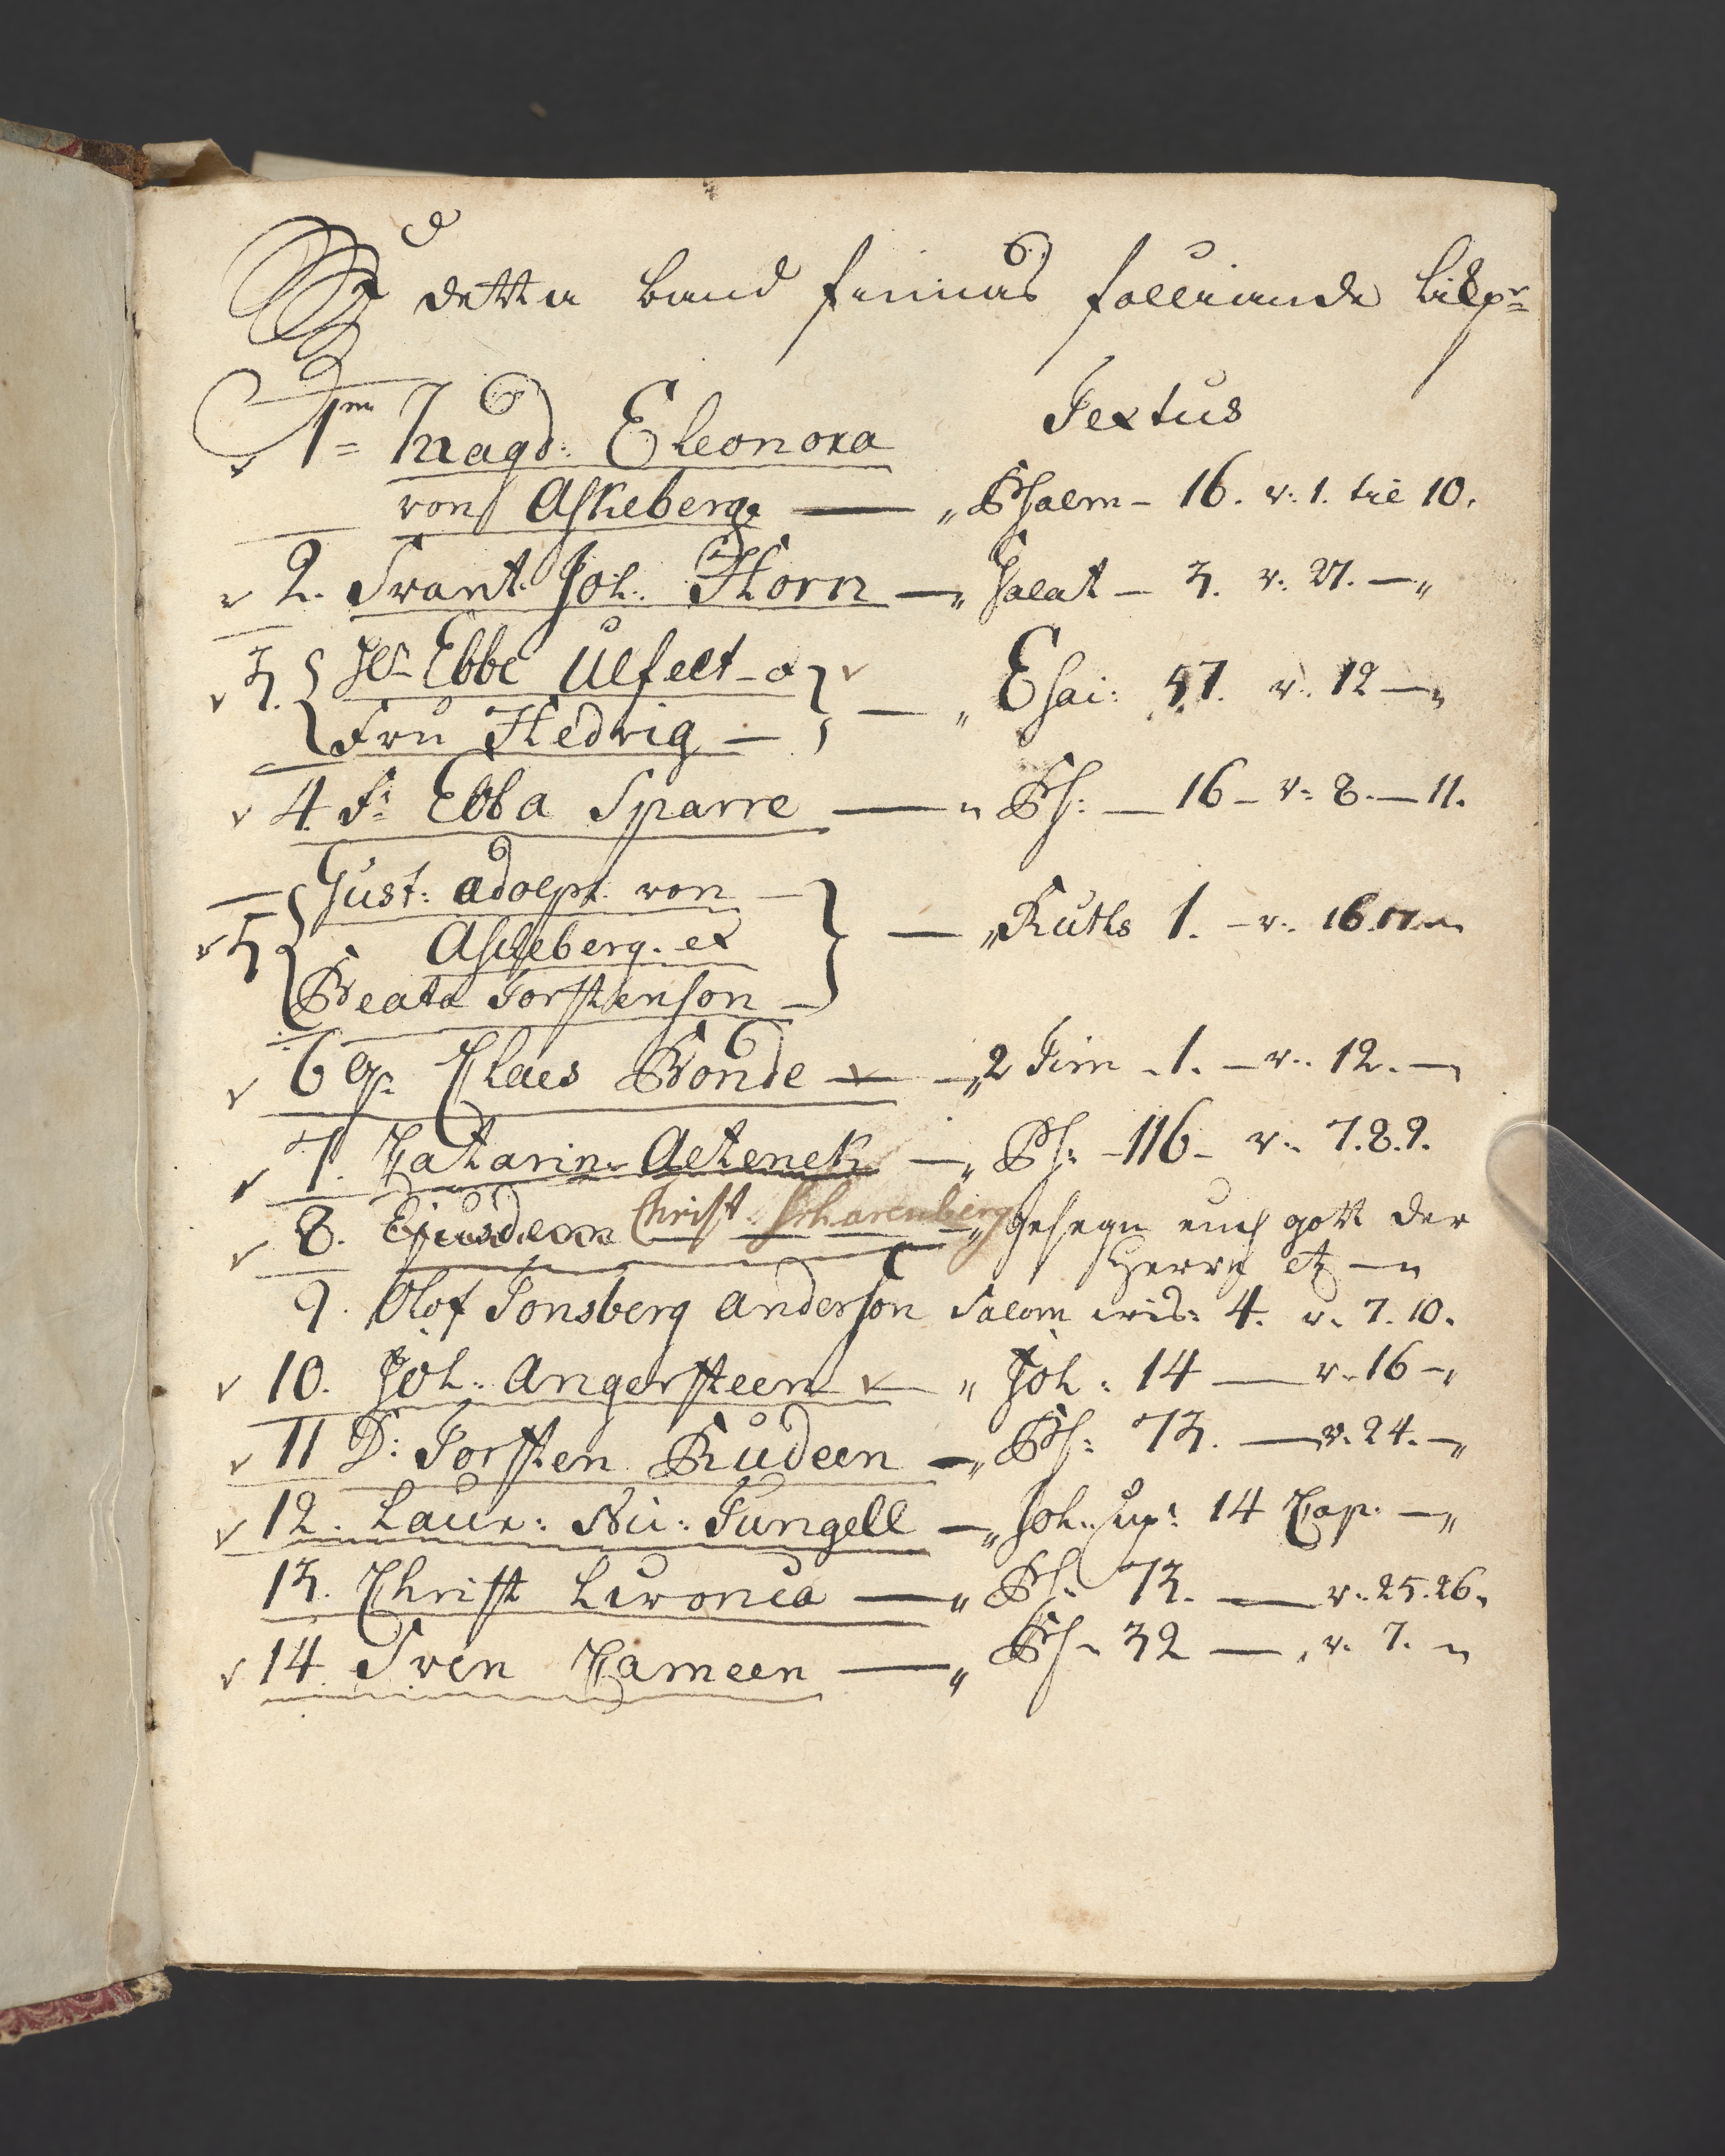 I detta band finnas följiande likpr=
Textus
1m= Magd: Eleonora
von Askeberg — „ Psalm – 16. v: 1. til 10.
2. Svant. Joh. Horn — „ Galat – 3. v: 27. — „
3. Gr Ebbe Ulfelt – o — „ Esai: 57. v. 12 — „
Fru Hedvig —
4. Fr Ebba Sparre — „ Ps: — 16 – v: 8. — 11.
Gust: adolph von —
5 Ascheberg. et — „ Ruths 1. – v. 16.17. „
Beata Torstenson —
6 Gr Klaes Bonde — „ 2 Tim – 1. – v. 12. — „
7. Katarin. — „ Ps: – 116 – v. 7.8.9.
8. Ejusdem Christ. Scharenberg — „ Gesegn euch gott der
Herre etz — „
9. Olof Tonsberg Anderson Salom wis: 4. v. 7. 10.
10. Joh. Angersteen — „ Joh: 14 — v. 16 – „
11 D: Torsten Rudeen — „ Ps: 73. — v. 24. – „
12. Laur: Ni: Tungell — „ Joh. up: 14 Cap. — „
13. Christ Livonia — „ Ps: 73. — v. 25.26.
14 Sven Kameen — „ Ps – 32 — , v. 7. „